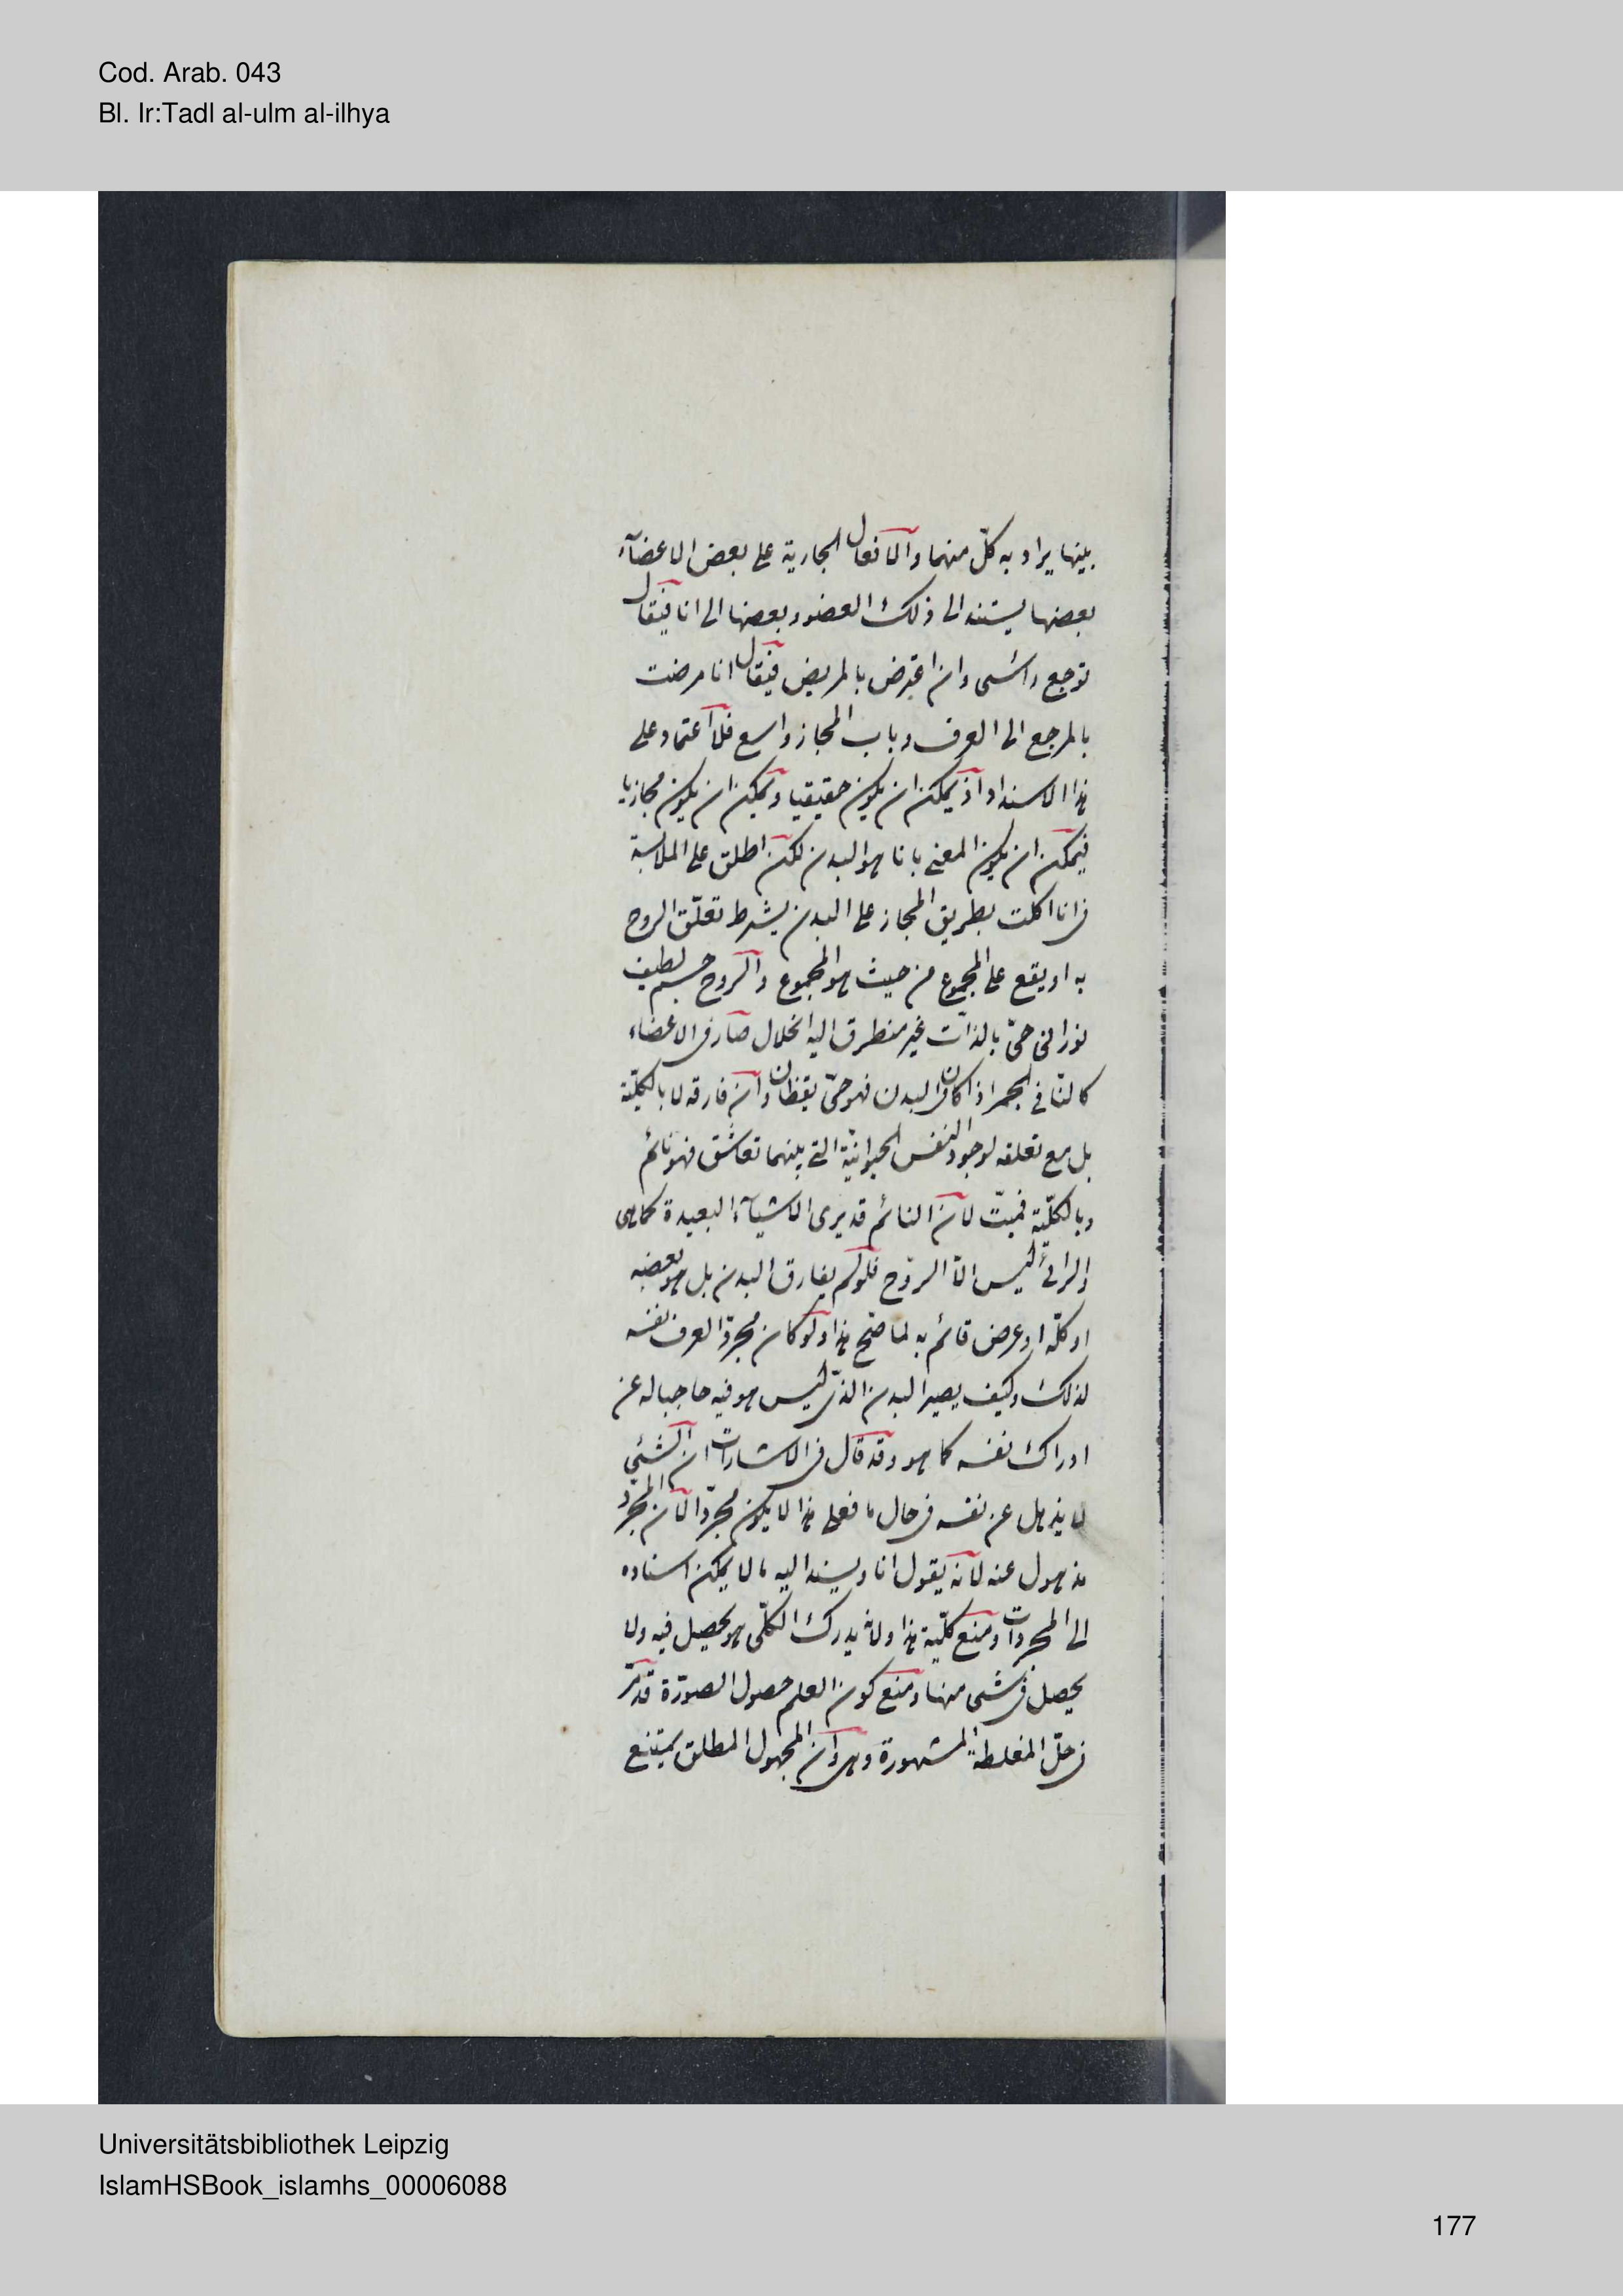 Cod. Arab. 043
Bl. Ir:Tadl al-ulm al-ilhya
بينها يراد به كلّ منهما والافعال الجارية على بعض الاعضآء
بعضها يستند الى ذلك العضو وبعضها الى انا فيقال
توجع راسى وان اعترض بالمريض فيقال انا مرضت
بالمرجع الى العرف وباب المجاز واسع فلا اعتماد على
هذا الاسناد اذ يمكن ان يكون حقيقيا ويمكن ان يكون مجازيا
فيمكن ان يكون المعنى بانا هو البدن لكن اطلق على الملابسة
فى انا اكلت بطريق المجاز على البدن بشرط تعلّق الروح
به او يقع على المجموع من حيث هو المجموع والروح جسم لطيف
نورانى حىّ بالذات غير متطرق اليه انحلال سار فى الاعضاء
كالنار فى الجمر اذا كان فى البدن فهو حىّ يقظان وان فارقه لا بالكليّة
بل مع تعلقه لوجود النفس الحيوانيّة التى بينهما تعاشق فهو نائم
وبالكليّة فميّت لان النائم قد يرى الاشيآء البعيدة كما هى
والرائى ليس الّا الروح فلو لم يفارق البدن بل هو بعضه
او كلّه او عرض قائم به لما صحّ هذا ولو كان مجردّا لعرف نفسه
لذلك وكيف يصير البدن الذى ليس هو فيه حاجبا له عن
ادراك نفسه كما هو وقد قال فى الاشارات ان الشئى
لا يذهل عن نفسه فى حال ما فعلى هذا لا يكون مجردّا لان المجرد
مذهول عنه لانه يقول انا ويسند اليه ما لا يمكن اسناده
الى المجردات ومنع كليّة هذا ولانه يدرك الكلّى هو يحصل فيه ولا
يحصل فى شى منها ومنع كون العلم حصول الصورة قد مرّ
فى حلّ المغلطة المشهورة وهى ان المجهول المطلق يمتنع
Universitätsbibliothek Leipzig
IslamHSBook_islamhs_00006088
177